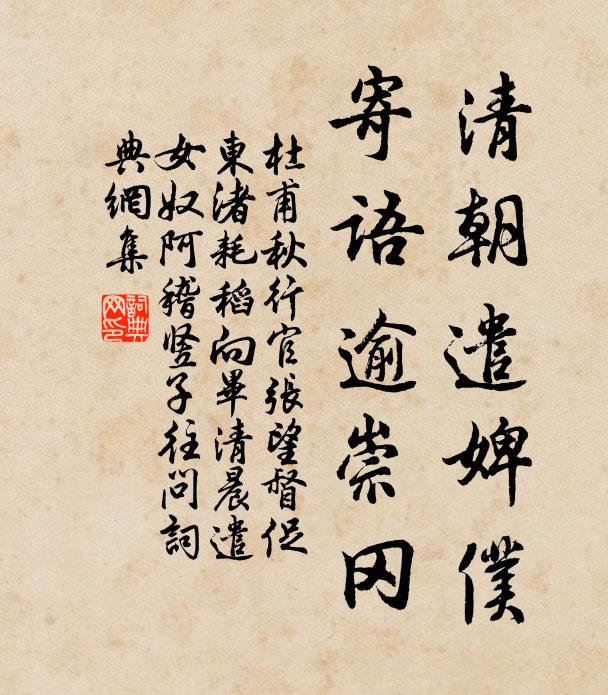 清朝遣婢僕
寄語逾崇冈
杜甫秋行官張望督促
東渚耗稻向畢清晨遣
女奴阿稽竖子往問詞
典網集
詞典
网印